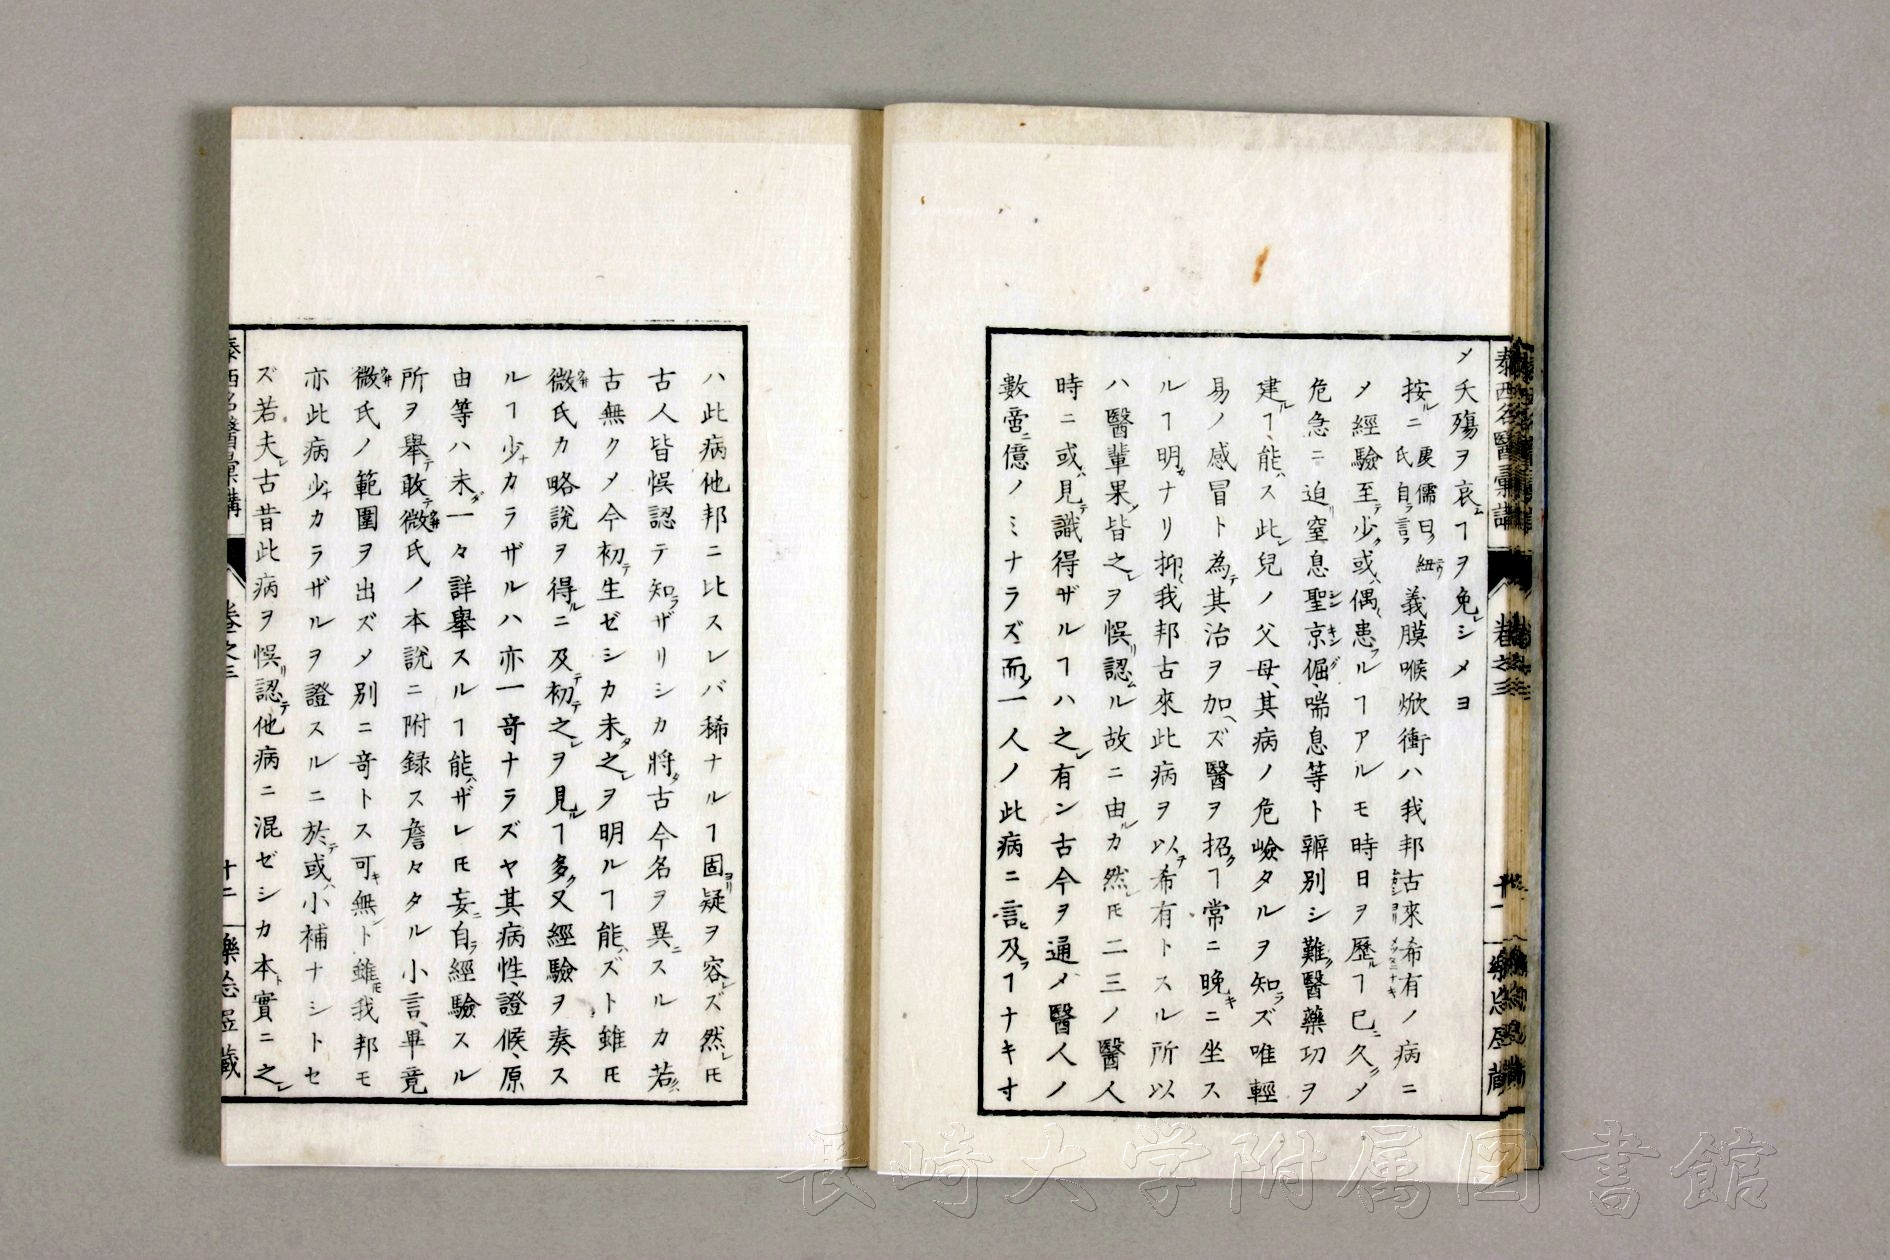 メ夭殤ヲ哀ムヿヲ免レシメヨ
按ルニ㢙儒曰ク紐氏自ラ言フ義膜喉焮衝ハ我邦古來希有ノ病ニ
メ經驗至テ少ク或ハ偶〻患フルヿアルモ時日ヲ歴ルヿ已ニ久クメ
危急ニ迫リ窒息聖京倔、喘息等ト辨別シ難ク醫藥功ヲ
建ルヿ、能ハス此レ兒ノ父母、其病ノ危嶮タルヲ知ラズ唯輕
易ノ感冒ト為テ其治ヲ加ヘズ醫ヲ招クヿ常ニ晩キニ坐ス
ルヿ明カナリ抑〻我邦古來此病ヲ以テ希有トスル所以
ハ醫輩果〆皆之レヲ悞リ認ムル故ニ由ルカ然レ𪜈二三ノ醫人
時ニ或ハ見テ識得ザルヿハ之レ有ン古今ヲ通メ醫人ノ
數啻ニ億ノミナラズ而〆一人ノ此病ニ言ヒ及フヿナキヤ
ハ此病他邦ニ比スレバ稀ナルヿ固ヨリ疑ヲ容レズ然レ𪜈
古人皆悞認テ知ラザリシカ將タ古今名ヲ異ニスルカ若クハ
古無クメ今初テ生ゼシカ未タ之レヲ明ルヿ能ハズト雖𪜈
微氏カ略説ヲ得ルニ及テ初テ之レヲ見ルヿ多ク又經驗ヲ奏ス
ルヿ少ナカラザルハ亦一奇ナラズヤ其病性、證候、原
由等ハ未ダ一々詳舉スルヿ能ハザレ𪜈妄ニ自ラ經驗スル
所ヲ舉テ敢テ微氏ノ本説ニ附録ス詹々タル小言、畢竟
微氏ノ範圍ヲ出ズメ別ニ奇トス可キ無シト雖𪜈我邦モ
亦此病少ナカラザルヲ證スルニ於テ或ハ小補ナシトセ
ズ若夫レ古昔此病ヲ悞リ認テ他病ニ混ゼシカ本ト實ニ之レ
泰西名醫彙講
卷之三
十二
樂𢗅居藏
長崎大学附属図書館